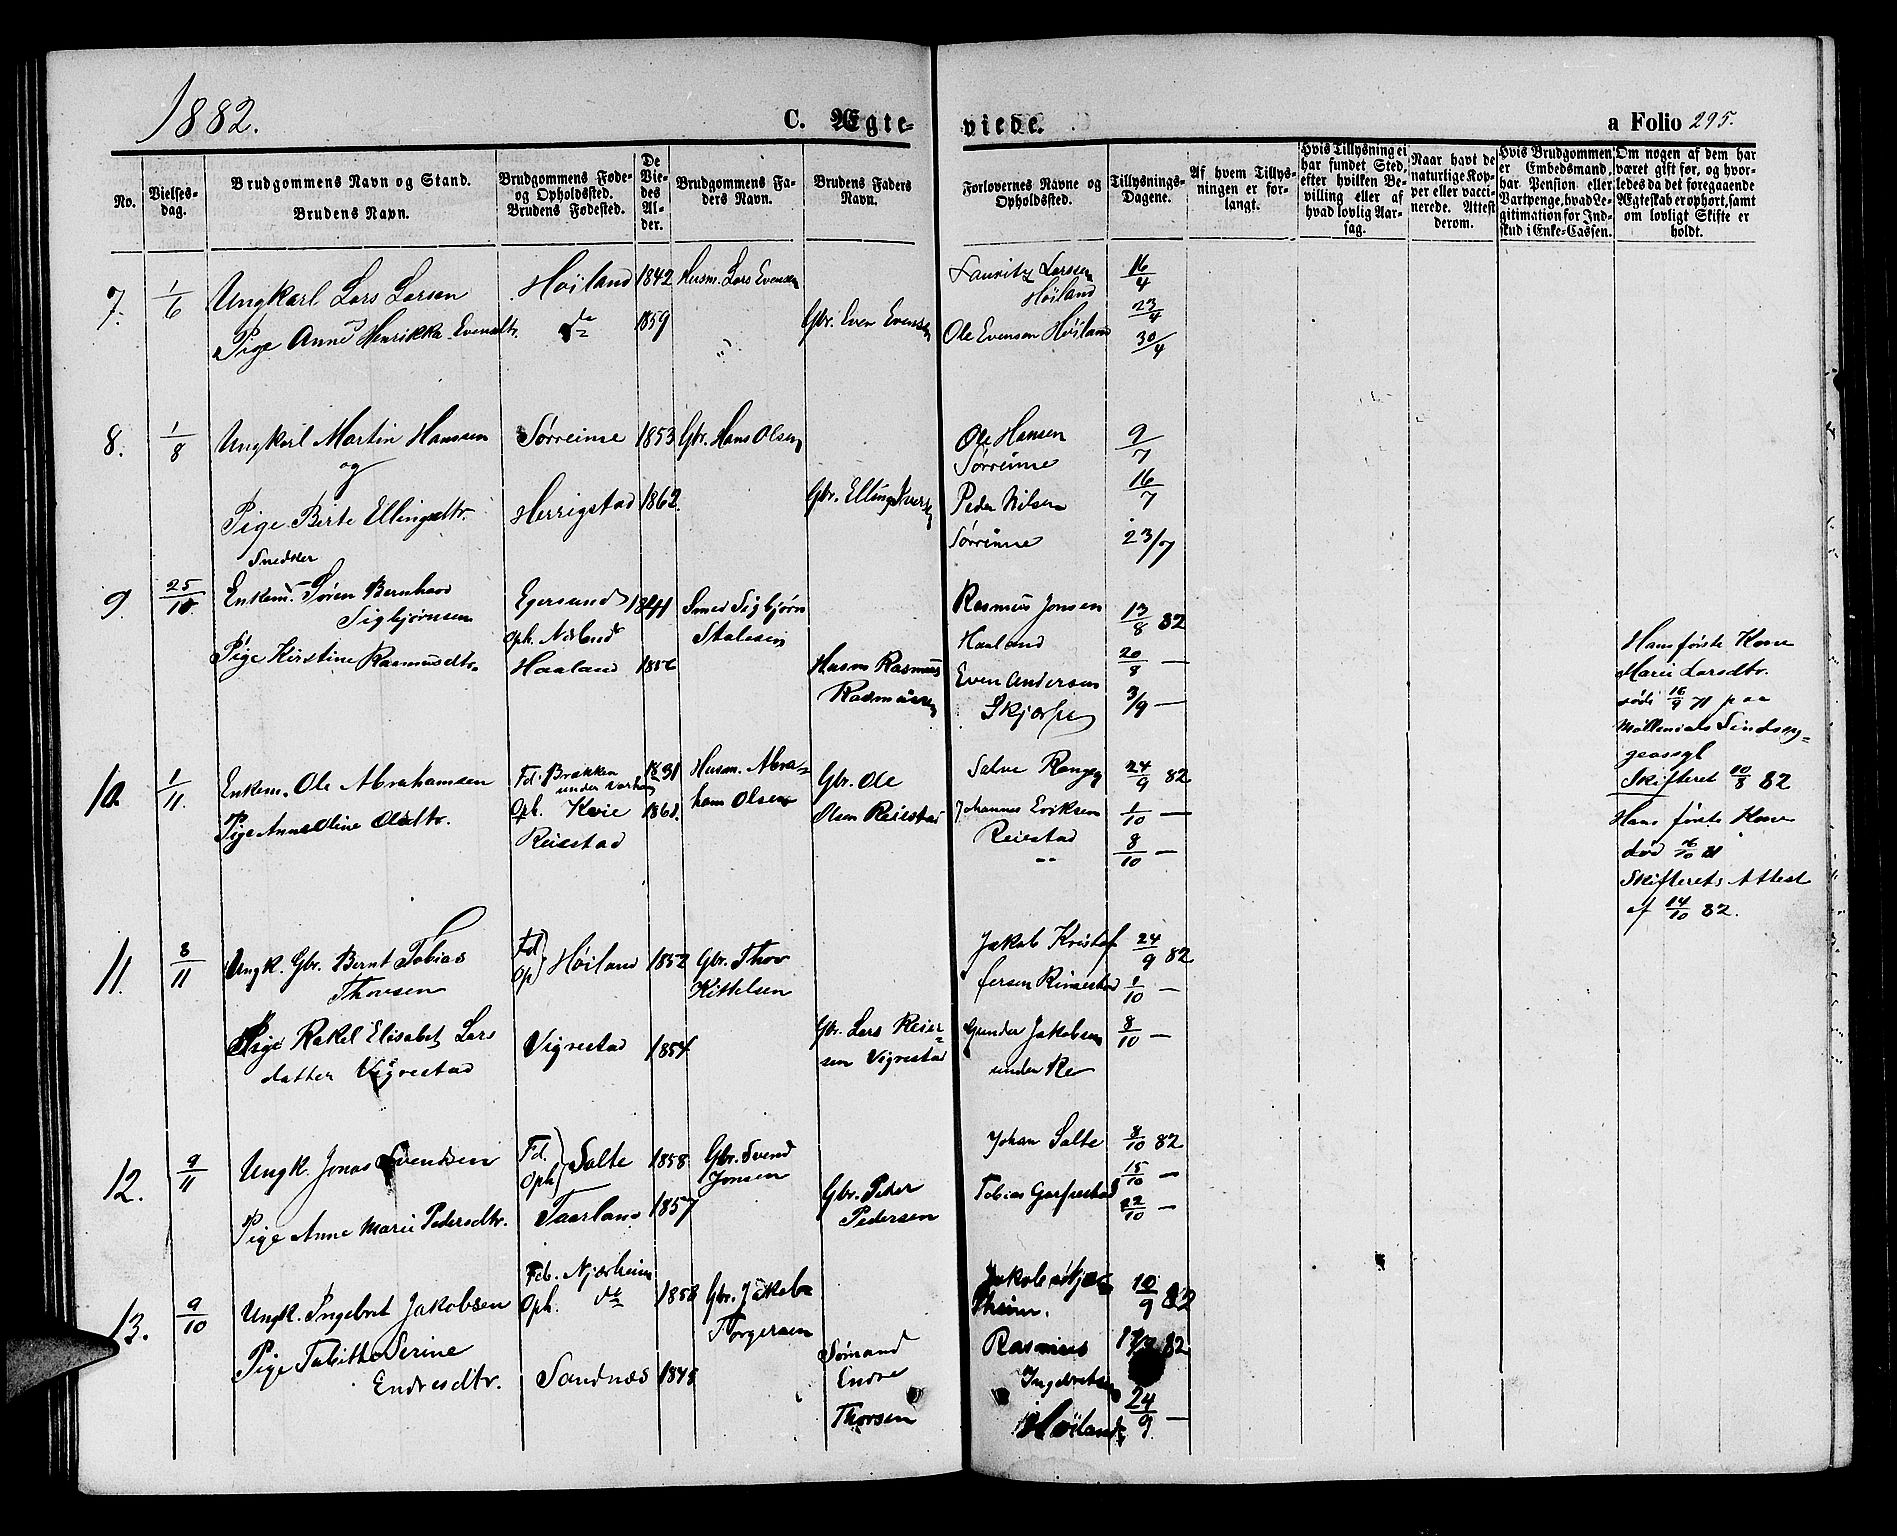 1882.
C. Ægte-
viede.
a Folio 295.
No.
Vielses-
dag.
Brudgommens Navn og Stand.
Brudens Navn.
Brudgommens Føde-
og Opholdssted.
Brudens Fødested.
De
Vie-
des
Al-
der.
Brudgommens Fa-
ders Navn.
Brudens Faders
Navn.
Forlovernes Navne og
Opholdssted.
Tillysnings-
Dagene.
Af hvem Tillys-
ningen er for-
langt.
Hvis Tillysning ei
har fundet Sted,
efter hvilken Be-
villing eller af
hvad lovlig Aar-
sag.
Naar havt de
naturlige Kop-
per eller vacci-
nerede. Attest
derom.
Hvis Brudgommen
er Embedsmand,
har Pension eller
Vartpenge, hvad Le-
gitimation for Ind-
skud i Enke-Cassen.
Om nogen af dem har
været gift før, og hvor-
ledes da det foregaaende
Ægteskab er ophørt, samt
om lovligt Skifte er
holdt.
7. 1/6 Ungkarl Lars Larsen Høiland 1842 Husm. Lars Evensen Lauritz Larsen 16/4
Høiland
Pige Anne Henrikka Evensdtr. do 1859 Gbr. Even Evensen Ole Evensen Høiland 23/4
30/4
8. 1/8 Ungkarl Martin Hansen Sørreime 1853 Gbr. Hans Olsen Ole Hansen 9/7
og Sørreime
Pige Berte Ellingsdtr. Herrigstad 1862 Gbr. Elling Iversen Peder Nilsen 16/7
Sørreime 23/7
Snedker
9. 25/10 Enkem. Søren Bernhard Egersund 1841 Smed Sigbjørn Rasmus Jonsen 13/8 82
Sigbjørnsen Oph. Nærland Stalesen Haaland
Pige Kirstine Rasmusdtr. Haaland 1856 Husm Rasmus Even Andersen 20/8 —
Rasmussen Skjærpe 3/9 —
Hans første Kone
Marie Larsdtr.
døde 16/9 71 paa
Møllendals Sindssyge-
geassyl
Skifteret 10/8 82
10. 1/11. Enkem. Ole Abrahamsen Fd. Brækken 1831 Husm. Abra- Gbr. Ole Salve 24/9 82
under Varhoug
Pige Anne Oline Olsdtr. Oph. Kvie 1861. ham Olsen Olsen Reiestad Johannes Eriksen 1/10 —
Reiestad Reiestad 8/10 —
Hans første Kone
død 16/10 81
Skifterets Attest
af 14/10 82.
11. 8/11 Ungk. Gbr. Bernt Tobias Fd. Oph Høiland 1852 Gbr. Thor Jakob Kristof 24/9 82
Thorsen Kittelsen fersen Rimestad 1/10 —
Pige Rakel Elisabet Lars Vigrestad 1854 Gbr. Lars Reier Gunder Jakobsen 8/10 —
datter Vigrestad sen Vigrestad under Re
12. 9/11 Ungk. Jonas Svendsen Fd. Oph Salte 1858 Gbr. Svend Johan Salte 8/10 82
Jonsen 15/10 —
Pige Anne Marie Pedersdtr. Taarland 1857 Gbr. Peder Tobias 22/10 —
Pedersen
13. 9/10 Ungk. Ingebret Jakobsen Fd. Njærheim 1858 Gbr. Jakob Jakob Njær 10/9 82
Oph. do Torgersen heim.
Pige Tabitha Serine Sandnæs 1848 Sømand Rasmus 17/9 82
Endresdtr. Endre Ingebretsen
Thorsen Høiland 24/9 —